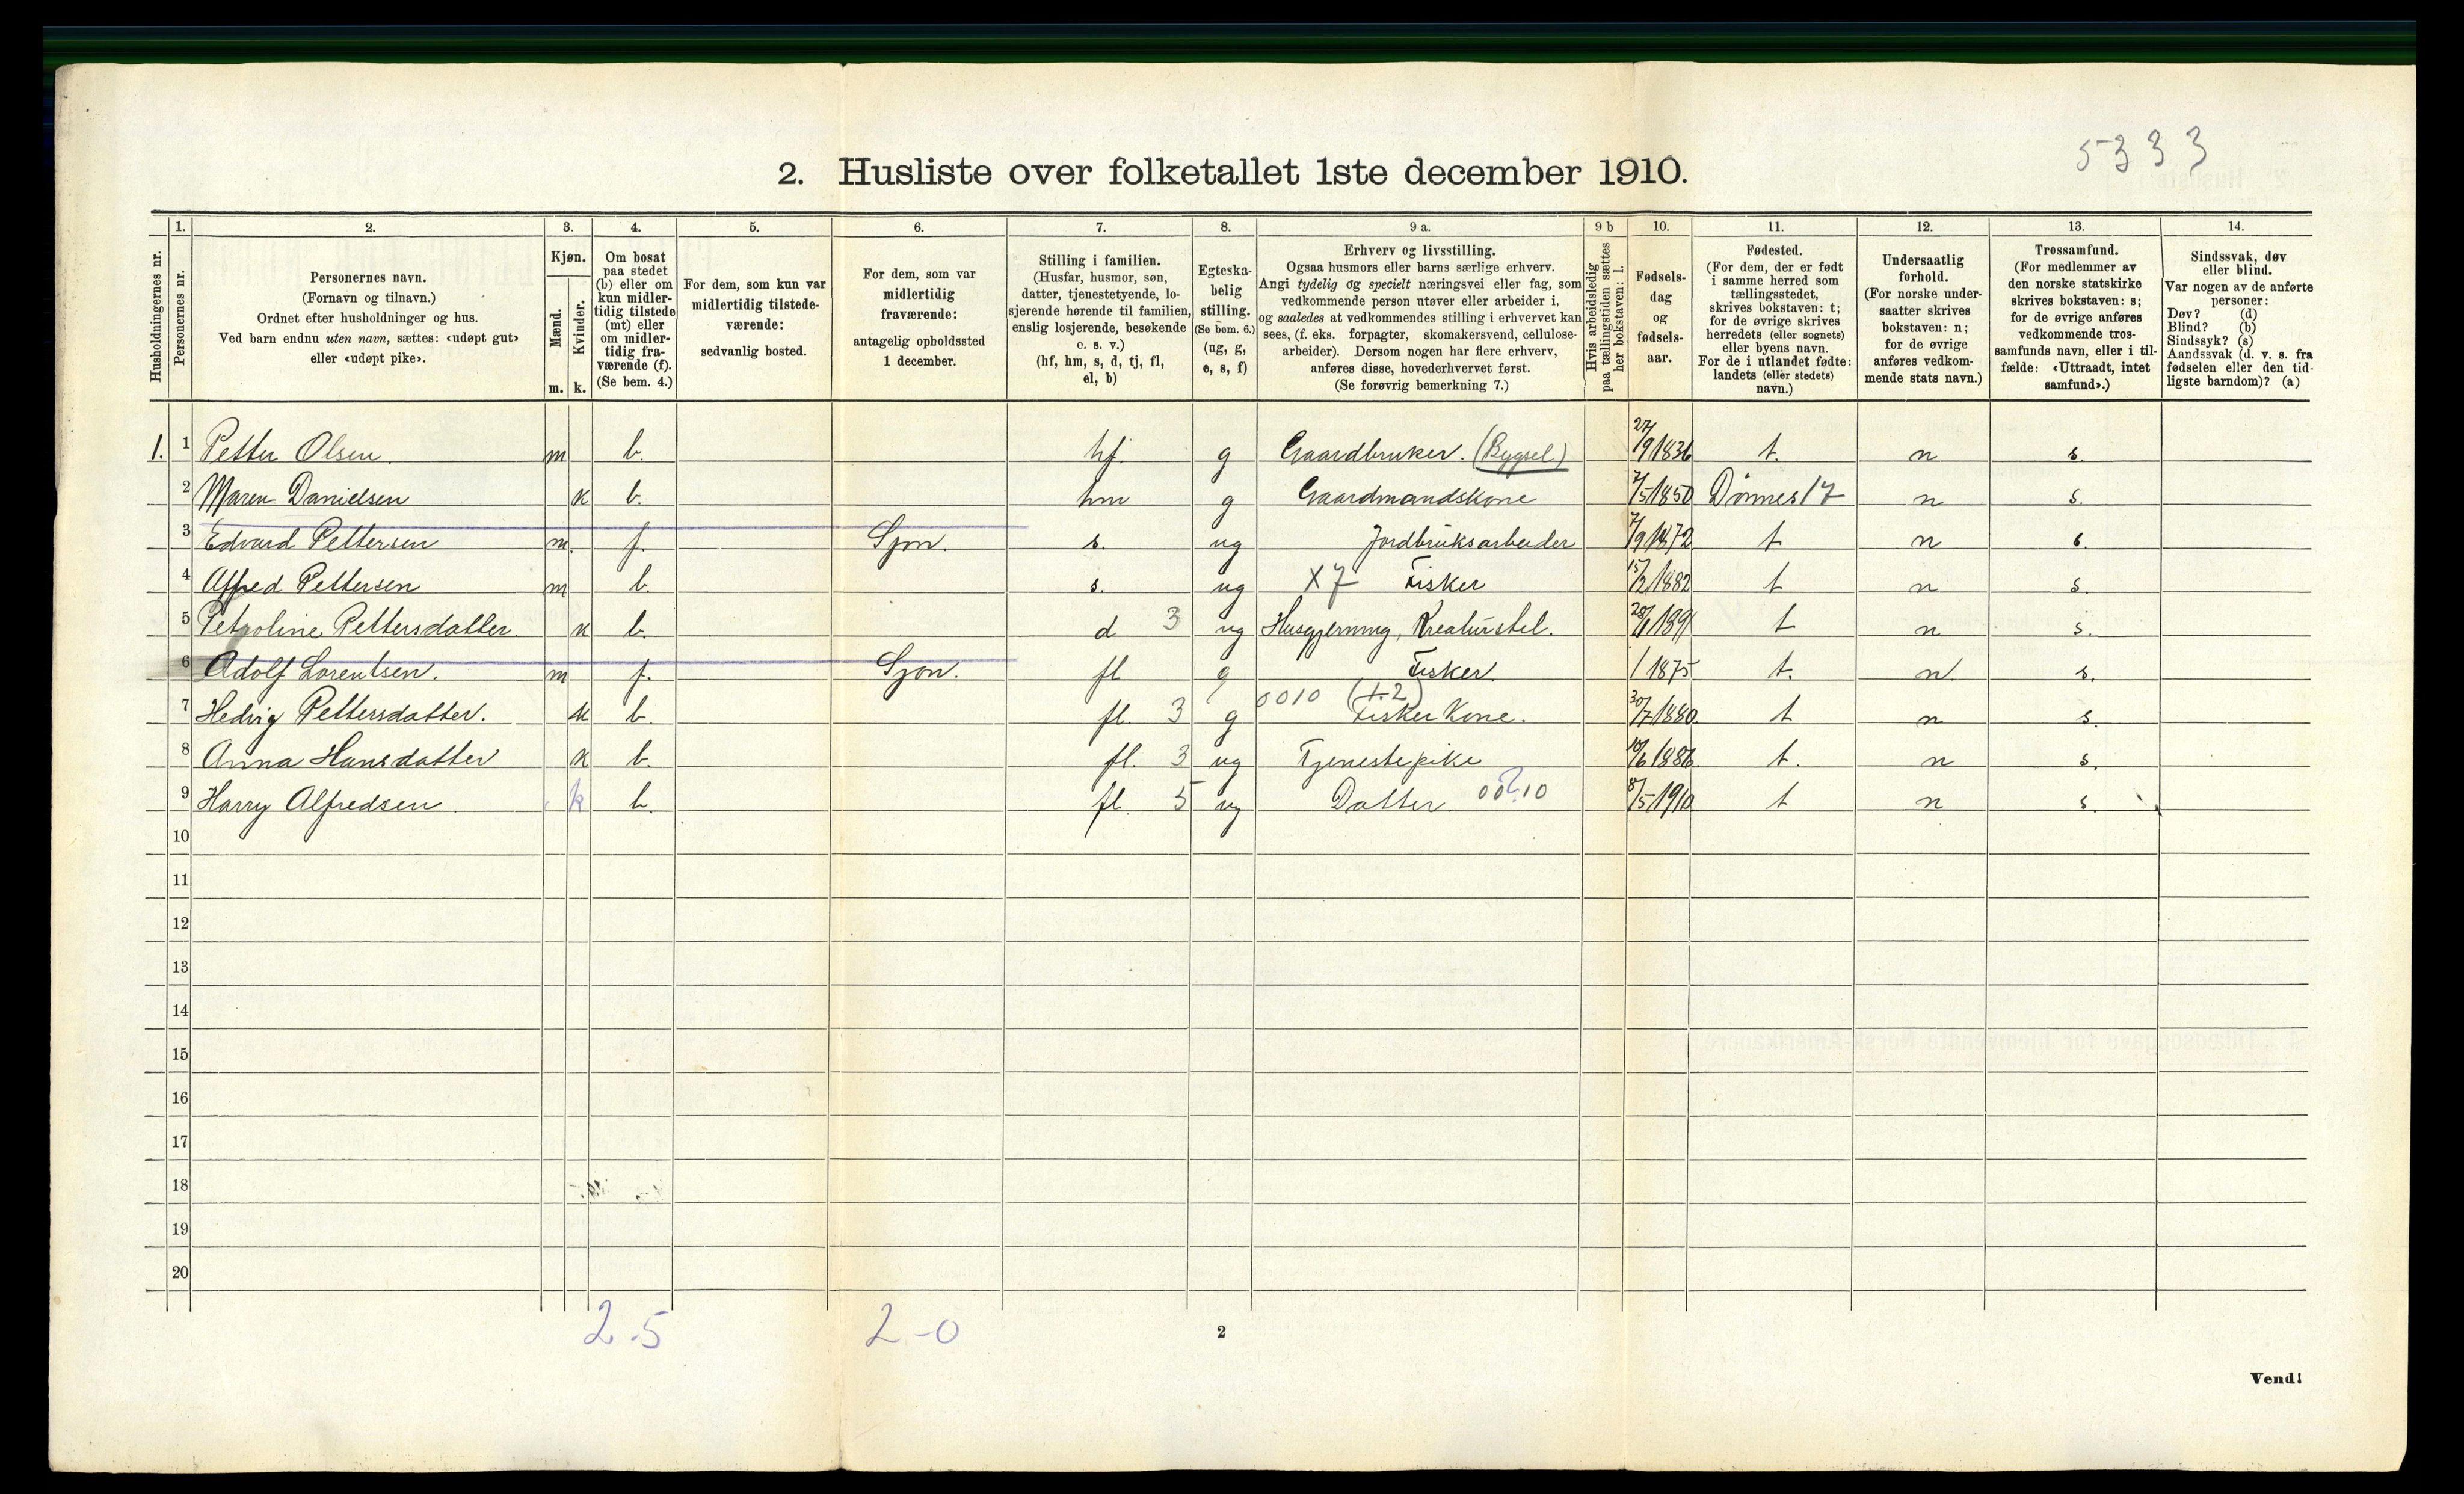 5333
2. Husliste over folketallet 1ste december 1910.
1. 2. 3. 4. 5. 6. 7. 8. 9 a. 9 b 10. 11. 12. 13. 14.
Husholdningernes nr.
Personernes nr.
Personernes navn.
(Fornavn og tilnavn.)
Ordnet efter husholdninger og hus.
Ved barn endnu uten navn, sættes: «udøpt gut»
eller «udøpt pike».
Kjøn.
Mænd.
Kvinder.
m. k.
Om bosat
paa stedet
(b) eller om
kun midler-
tidig tilstede
(mt) eller
om midler-
tidig fra-
værende (f).
(Se bem. 4.)
For dem, som kun var
midlertidig tilstede-
værende:
sedvanlig bosted.
For dem, som var
midlertidig
fraværende:
antagelig opholdssted
1 december.
Stilling i familien.
(Husfar, husmor, søn,
datter, tjenestetyende, lo-
sjerende hørende til familien,
enslig losjerende, besøkende
o. s. v.)
(hf, hm, s, d, tj, fl,
el, b)
Egteska-
belig
stilling.
(Se bem. 6.)
(ug, g,
e, s, f)
Erhverv og livsstilling.
Ogsaa husmors eller barns særlige erhverv.
Angi tydelig og specielt næringsvei eller fag, som
vedkommende person utøver eller arbeider i,
og saaledes at vedkommendes stilling i erhvervet kan
sees, (f. eks. forpagter, skomakersvend, cellulose-
arbeider). Dersom nogen har flere erhverv,
anføres disse, hovederhvervet først.
(Se forøvrig bemerkning 7.)
Hvis arbeidsledig
paa tællingstiden sættes
her bokstaven: l.
Fødsels-
dag
og
fødsels-
aar.
Fødested.
(For dem, der er født
i samme herred som
tællingsstedet,
skrives bokstaven: t;
for de øvrige skrives
herredets (eller sognets)
eller byens navn.
For de i utlandet fødte:
landets (eller stedets)
navn.)
Undersaatlig
forhold.
(For norske under-
saatter skrives
bokstaven: n;
for de øvrige
anføres vedkom-
mende stats navn.)
Trossamfund.
(For medlemmer av
den norske statskirke
skrives bokstaven: s;
for de øvrige anføres
vedkommende tros-
samfunds navn, eller i til-
fælde: «Uttraadt, intet
samfund».)
Sindssvak, døv
eller blind.
Var nogen av de anførte
personer:
Døv? (d)
Blind? (b)
Sindssyk? (s)
Aandssvak (d. v. s. fra
fødselen eller den tid-
ligste barndom)? (a)
1. 1 Petter Olsen. m b. hf. g Gaardbruker. (Bygsel) 27/9 1836 t. n s.
2 Maren Danielsen k b. hm g Gaardmandskone 7/5 1850 Dønnes 17 n s.
3 Edvard Pettersen m. f. Sjon. s. ug Jordbruksarbeider 7/9 1872 t n s.
4 Alfred Pettersen m b. s. ug X 7 Fisker 15/2 1882 t n s.
5 Petroline Pettersdatter. k b. d 3 ug Husgjerning, Kreaturstel. t n s.
6 Adolf Lorentsen. m f. Sjon. fl g Fisker. / 1875 t. n s.
0010 (1.2)
7 Hedvig Pettersdatter. k b. fl. 3 g Fisker Kone. 30/7 1880. t n s.
8 Anna Hansdatter k b. fl. 3 ug Tjenestepike 10/6 1886. t. n s.
9 Harry Alfredsen k b. fl. 5 ug Datter 8/5 1910 t n s.
10
11
12
13
14
15
16
17
18
19
20
2-5 2-0
2
Vend!